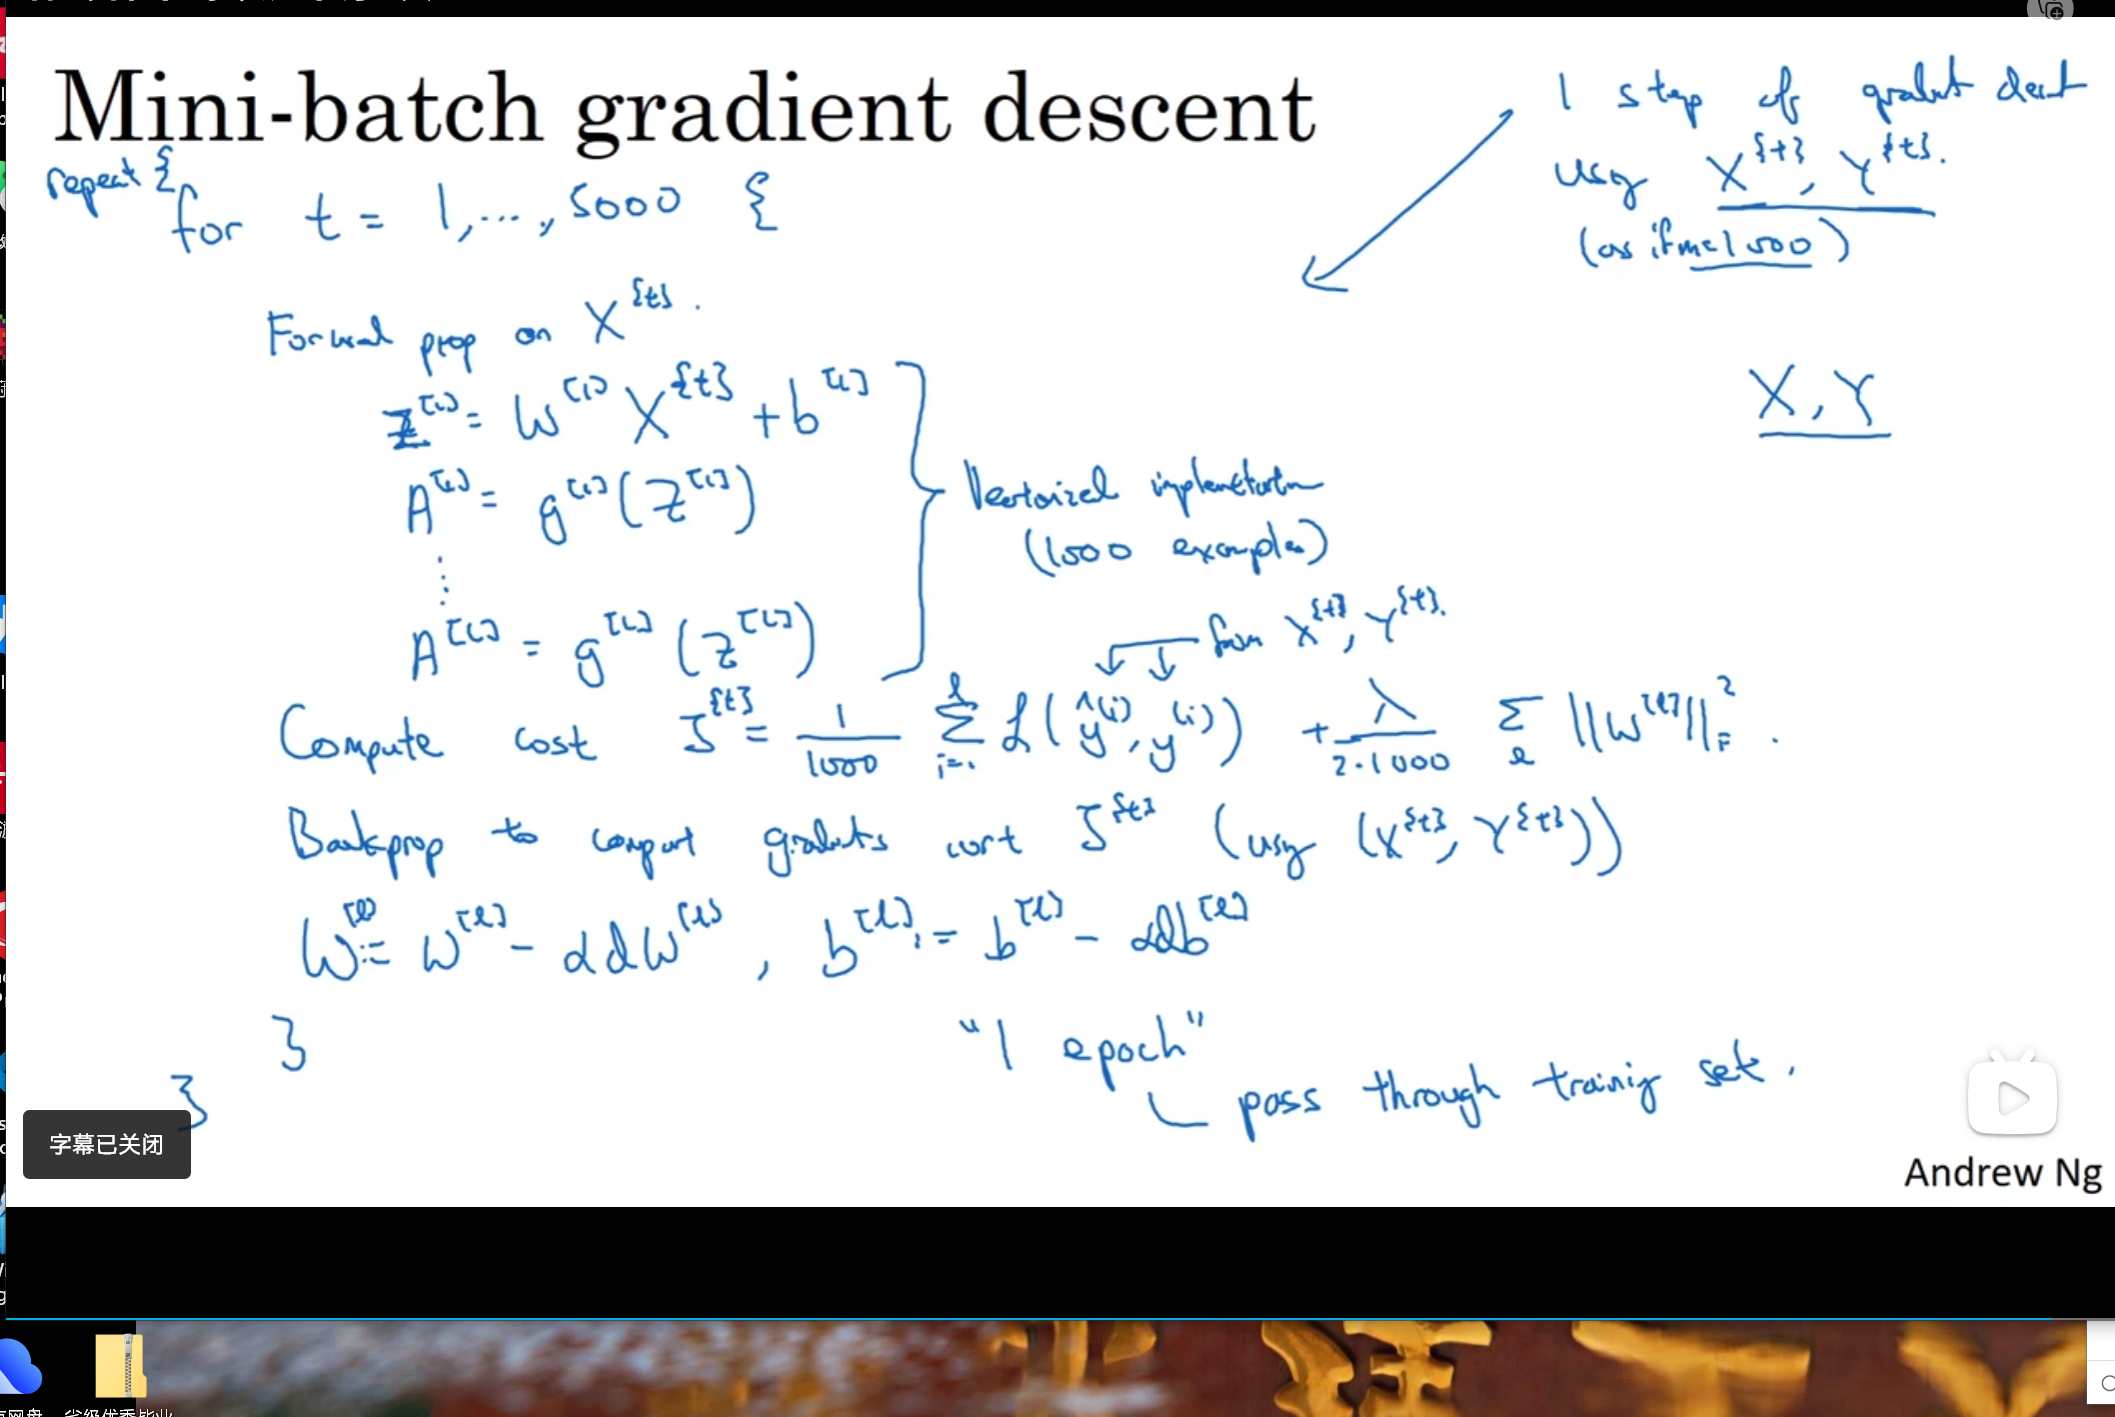 Mini-batch gradient descent
1 step of gradient descent
using X^{t}, Y^{t}.
(as if m=1000)
repeat {
for t = 1,..., 5000 {
Forward prop on X^{t}.
X, Y
Z^[1] = W^[1] X^{t} + b^[1]
A^[1] = g^[1](Z^[1])
Vectorized implementation
(1000 examples)
⋮
A^[L] = g^[L](Z^[L])
from X^{t}, Y^{t}.
Compute cost J^{t} = 1/1000 Σ_{i=1}^{l} L(ŷ^(i), y^(i)) + λ/(2·1000) Σ_l ||W^[l]||_F^2.
Backprop to compute gradients wrt J^{t} (using (X^{t}, Y^{t}))
W^[l] := W^[l] - αdW^[l], b^[l] := b^[l] - αdb^[l]
}
}
"1 epoch"
pass through training set.
字幕已关闭
Andrew Ng